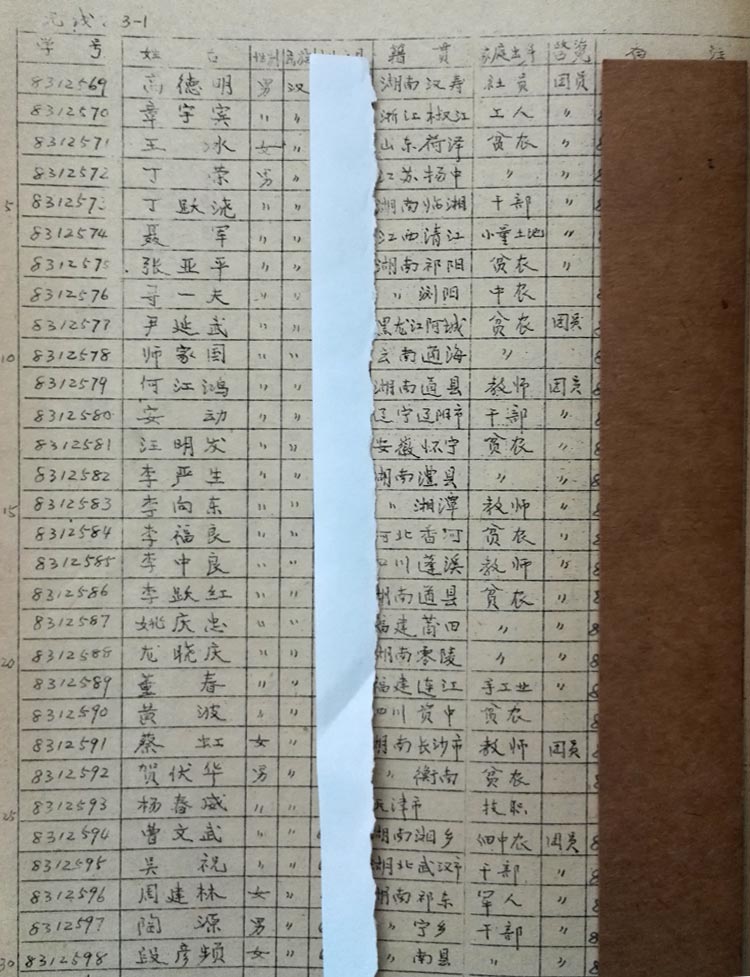 无线 3-1
学号 姓名 性别 民族 月 籍贯 家庭出身 备注
8312569 高德明 男 汉 湖南汉寿 社员 团员
8312570 章宇宾 〃 〃 浙江椒江 工人 〃
8312571 王冰 女 〃 山东荷泽 贫农 〃
8312572 丁荣 男 〃 江苏扬中 〃 〃
5 8312573 丁跃浇 〃 〃 湖南临湘 干部 〃
8312574 聂军 〃 〃 江西清江 小量土地 〃
8312575 张亚平 〃 〃 湖南祁阳 贫农 〃
8312576 寻一夫 〃 〃 〃 浏阳 中农
8312577 尹延武 〃 〃 黑龙江阿城 贫农 团员
10 8312578 师家国 〃 〃 云南通海 〃
8312579 何江鸿 〃 〃 湖南道县 教师 团员
8312580 安动 〃 〃 辽宁辽阳市 干部 〃
8312581 汪明发 〃 〃 安徽怀宁 贫农 〃
8312582 李严生 〃 〃 湖南澧县 〃 〃
15 8312583 李向东 〃 〃 〃 湘潭 教师 〃
8312584 李福良 〃 〃 河北香河 贫农 〃
8312585 李中良 〃 〃 四川蓬溪 教师 〃
8312586 李跃红 〃 〃 湖南道县 贫农 〃
8312587 姚庆忠 〃 〃 福建莆田 〃 〃
20 8312588 龙晓庆 〃 〃 湖南零陵 〃 〃
8312589 董春 〃 〃 福建连江 手工业 〃
8312590 黄波 〃 〃 四川资中 贫农
8312591 蔡虹 女 〃 湖南长沙市 教师 团员
8312592 贺伏华 男 〃 〃 衡南 贫农
25 8312593 杨春威 〃 〃 天津市 技职
8312594 曹文武 〃 〃 湖南湘乡 佃中农 团员
8312595 吴祝 〃 〃 湖北武汉市 干部 〃
8312596 周建林 女 〃 湖南祁东 军人 〃
8312597 陶源 男 〃 〃 宁乡 干部 〃
30 8312598 段彦频 女 〃 〃 南县 〃 〃